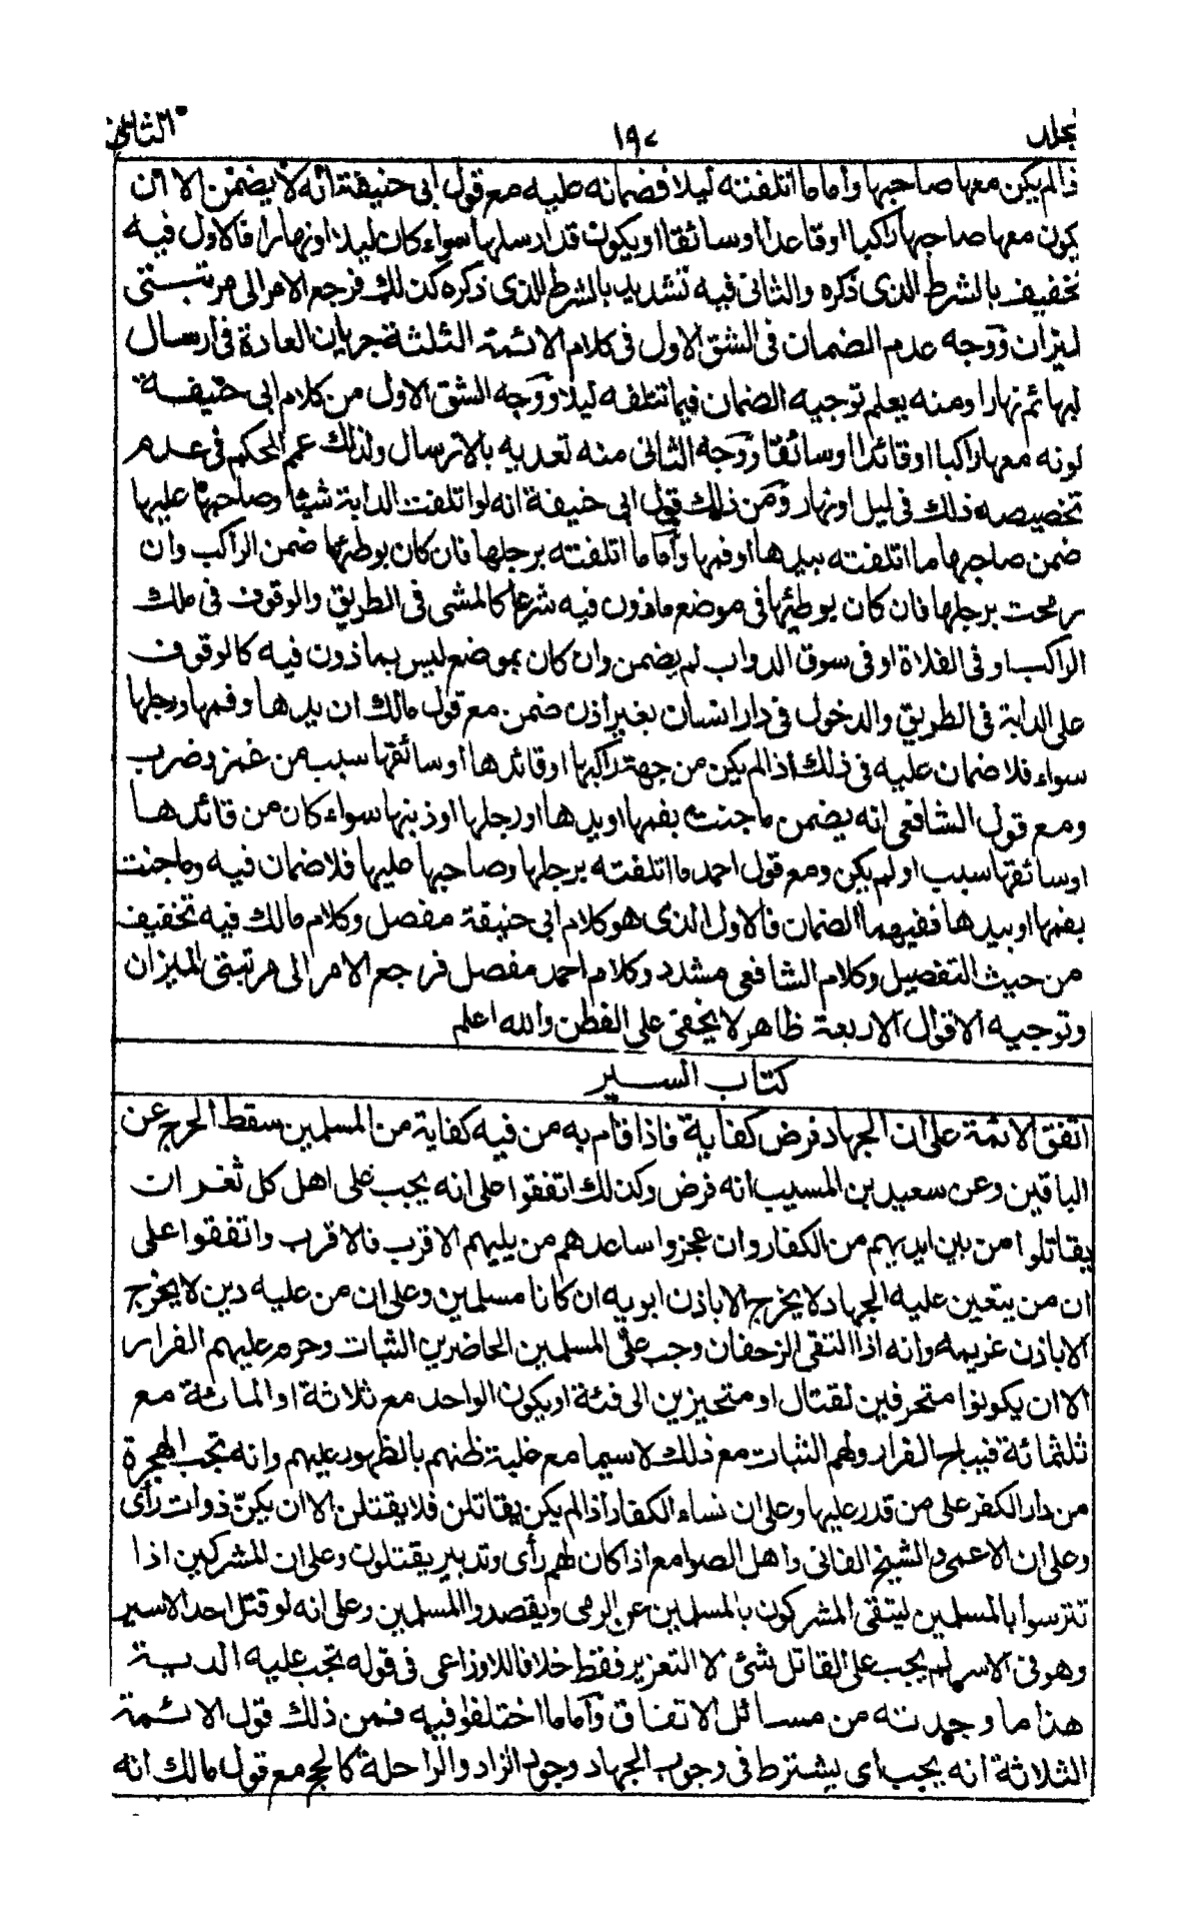 مجلد ١٩٧ الثانى
فالم يكن معها صاحبها واما ما اتلفته ليلا فضمانه عليه مع قول ابى حنيفة انه لا يضمن الا ان
يكون معها صاحبها راكبا او قاعدا او سائقا او يكون قد ارسلها سواء كان ليلا او نهارا فالاول فيه
تخفيف بالشرط الذى ذكره والثانى فيه تشديد بالشرط الذى ذكره كذلك فرجع الامر الى مرتبتى
ليزان ووجه عدم الضمان فى الشق الاول فى كلام الائمة الثلثة جريان العادة فى ارسال
لبهائم نهارا ومنه يعلم توجيه الضمان فيما تتلفه ليلا ووجه الشق الاول من كلام ابى حنيفة
لونه معها راكبا او قائدا او سائقا ووجه الثانى منه تعديه بالارسال ولذلك عمم الحكم فى عدم
تخصيصه ذلك فى ليل او نهار ومن ذلك قول ابى حنيفة انه لو اتلفت الدابة شيئا وصاحبها عليها
ضمن صاحبها ما اتلفته بيدها او فمها واما ما اتلفته برجلها فان كان بوطئها ضمن الراكب وان
رمحت برجلها فان كان يوطئها فى موضع ماذون فيه شرعا كالمشى فى الطريق والوقوف فى ملك
الراكب او فى الفلاة او فى سوق الدواب لم يضمن وان كان بموضع ليس بماذون فيه كالوقوف
على الدابة فى الطريق والدخول فى دار انسان بغير اذن ضمن مع قول مالك ان يدها وفمها ورجلها
سواء فلا ضمان عليه فى ذلك اذا لم يكن من جهة راكبها او قائدها او سائقها سبب من غمز وضرب
ومع قول الشافعى انه يضمن ما جنت بفمها او يدها او رجلها او ذنبها سواء كان من قائدها
او سائقها سبب او لم يكن ومع قول احمد ما اتلفته برجلها وصاحبها عليها فلا ضمان فيه وما جنت
بفمها او بيدها ففيهما الضمان فالاول الذى هو كلام ابى حنيفة مفصل وكلام مالك فيه تخفيف
من حيث التفصيل وكلام الشافعى مشدد وكلام احمد مفصل فرجع الامر الى مرتبتى الميزان
وتوجيه الاقوال الاربعة ظاهر لا يخفى على الفطن والله اعلم
كتاب السير
اتفق الائمة على ان الجهاد فرض كفاية فاذا قام به من فيه كفاية من المسلمين سقط الحرج عن
الباقين وعن سعيد بن المسيب انه فرض وكذلك اتفقوا على انه يجب على اهل كل ثغر ان
يقاتلوا من بين ايديهم من الكفار وان عجزوا ساعدهم من يليهم الاقرب فالاقرب واتفقوا على
ان من يتعين عليه الجهاد لا يخرج الا باذن ابويه ان كانا مسلمين وعلى ان من عليه دين لا يخرج
الا باذن غريمه وانه اذا التقى الزحفان وجب على المسلمين الحاضرين الثبات وحرم عليهم الفرار
الا ان يكونوا متحرفين لقتال او متحيزين الى فئة او يكون الواحد مع ثلاثة او المائة مع
ثلثمائة فيباح الفرار ولهم الثبات مع ذلك لا سيما مع غلبة ظنهم بالظهور عليهم وانه تجب الهجرة
من دار الكفر على من قدر عليها وعلى ان نساء الكفار اذا لم يكن يقاتلن فلا يقتلن الا ان يكنّ ذوات رأى
وعلى ان الاعمى والشيخ الفانى واهل الصوامع اذا كان لهم رأى وتدبير يقتلون وعلى ان المشركين اذا
تترسوا بالمسلمين ليتقى المشركون بالمسلمين عن الرمى ويقصدوا المسلمين وعلى انه لو قتل احد الاسير
وهو فى الاسر لم يجب على القاتل شئ الا التعزير فقط خلافا للاوزاعى فى قوله تجب عليه الدية
هذا ما وجدته من مسائل الاتفاق واما ما اختلفوا فيه فمن ذلك قول الائمة
الثلاثة انه يجب اى يشترط فى وجوب الجهاد وجود الزاد والراحلة كالحج مع قول مالك انه